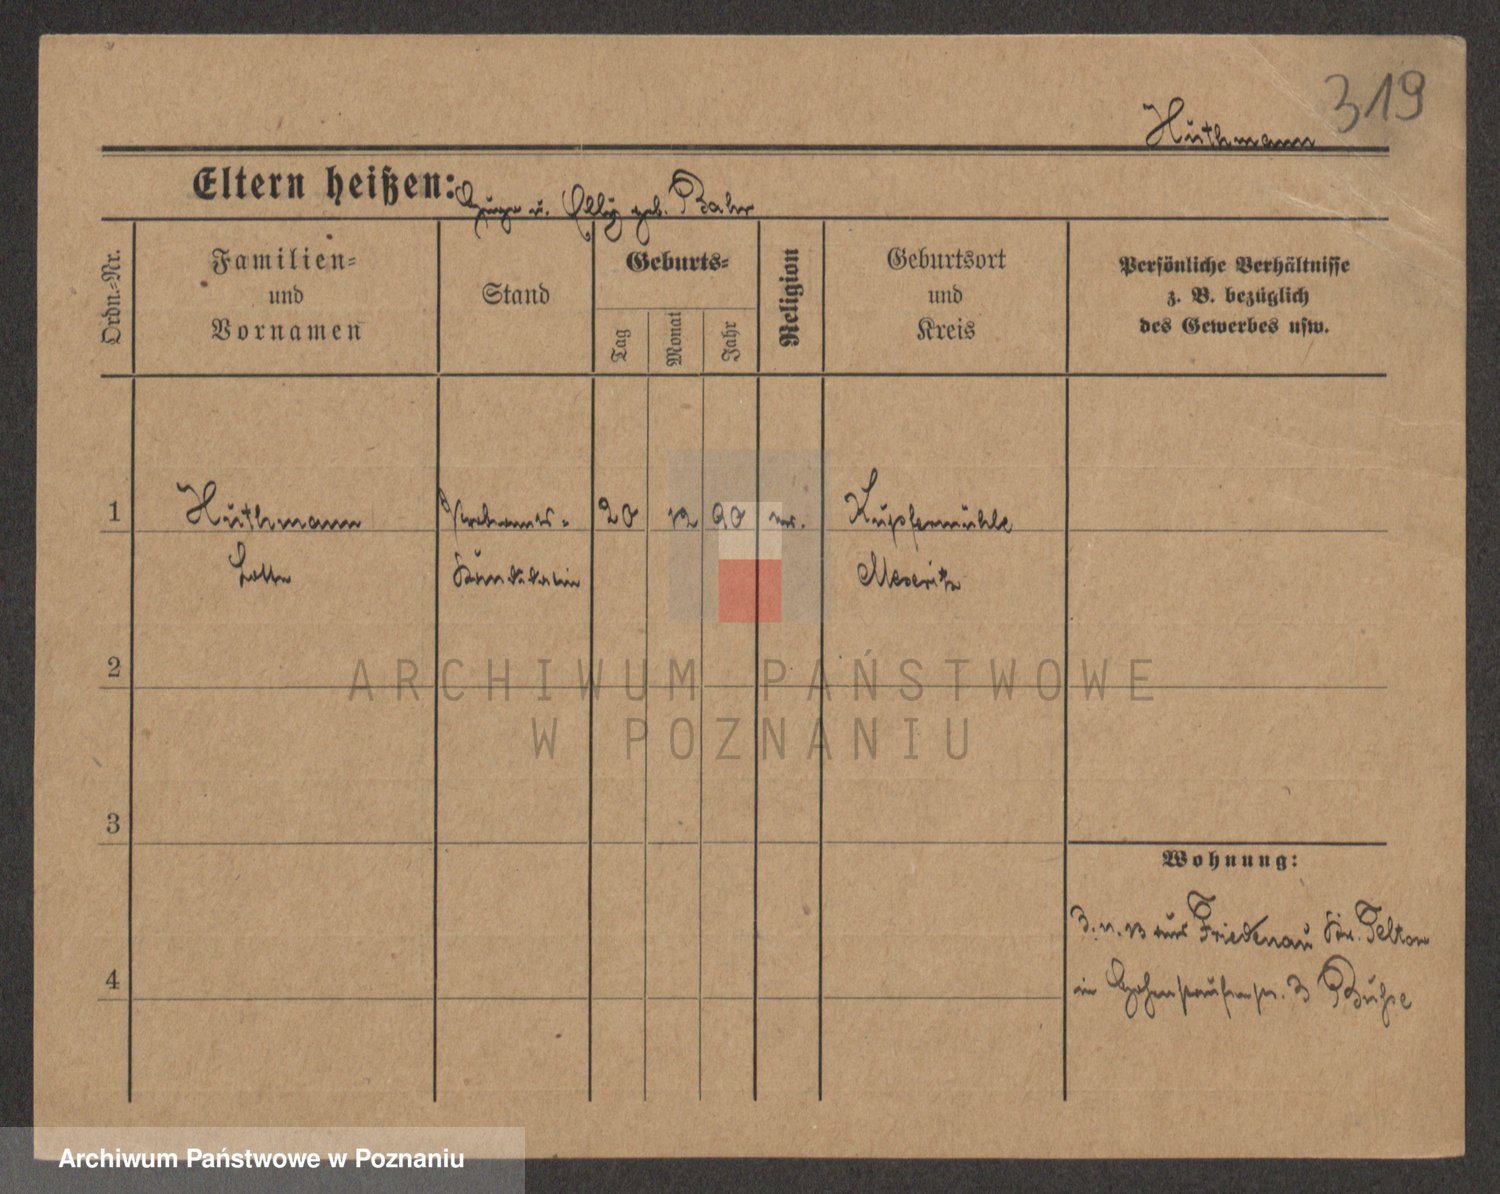 319
Huthmann
Eltern heißen: Hugo u. Elly geb. Bahr
Ordn.=Nr.
Familien=
und
Vornamen
Stand
Geburts=
Tag
Monat
Jahr
Religion
Geburtsort
und
Kreis
Persönliche Verhältnisse
z. B. bezüglich
des Gewerbes usw.
1 Huthmann 20 12 90 Kupfermühle
Lotte Meseritz
2
ARCHIWUM PAŃSTWOWE
W POZNANIU
3
Wohnung:
aus Friedenau Kr. Teltow
in Hohenstaufenstr. 3 Buhse
4
Archiwum Państwowe w Poznaniu